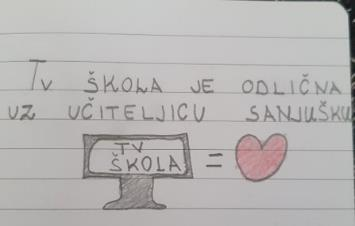 Tv ŠKOLA JE ODLIČNA
UZ UČITELJICU SANJUŠKU
TV
ŠKOLA =